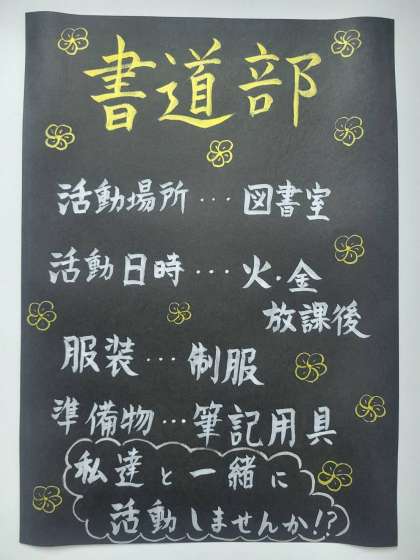 書道部
活動場所…図書室
活動日時…火・金
放課後
服装…制服
準備物…筆記用具
私達と一緒に
活動しませんか!?